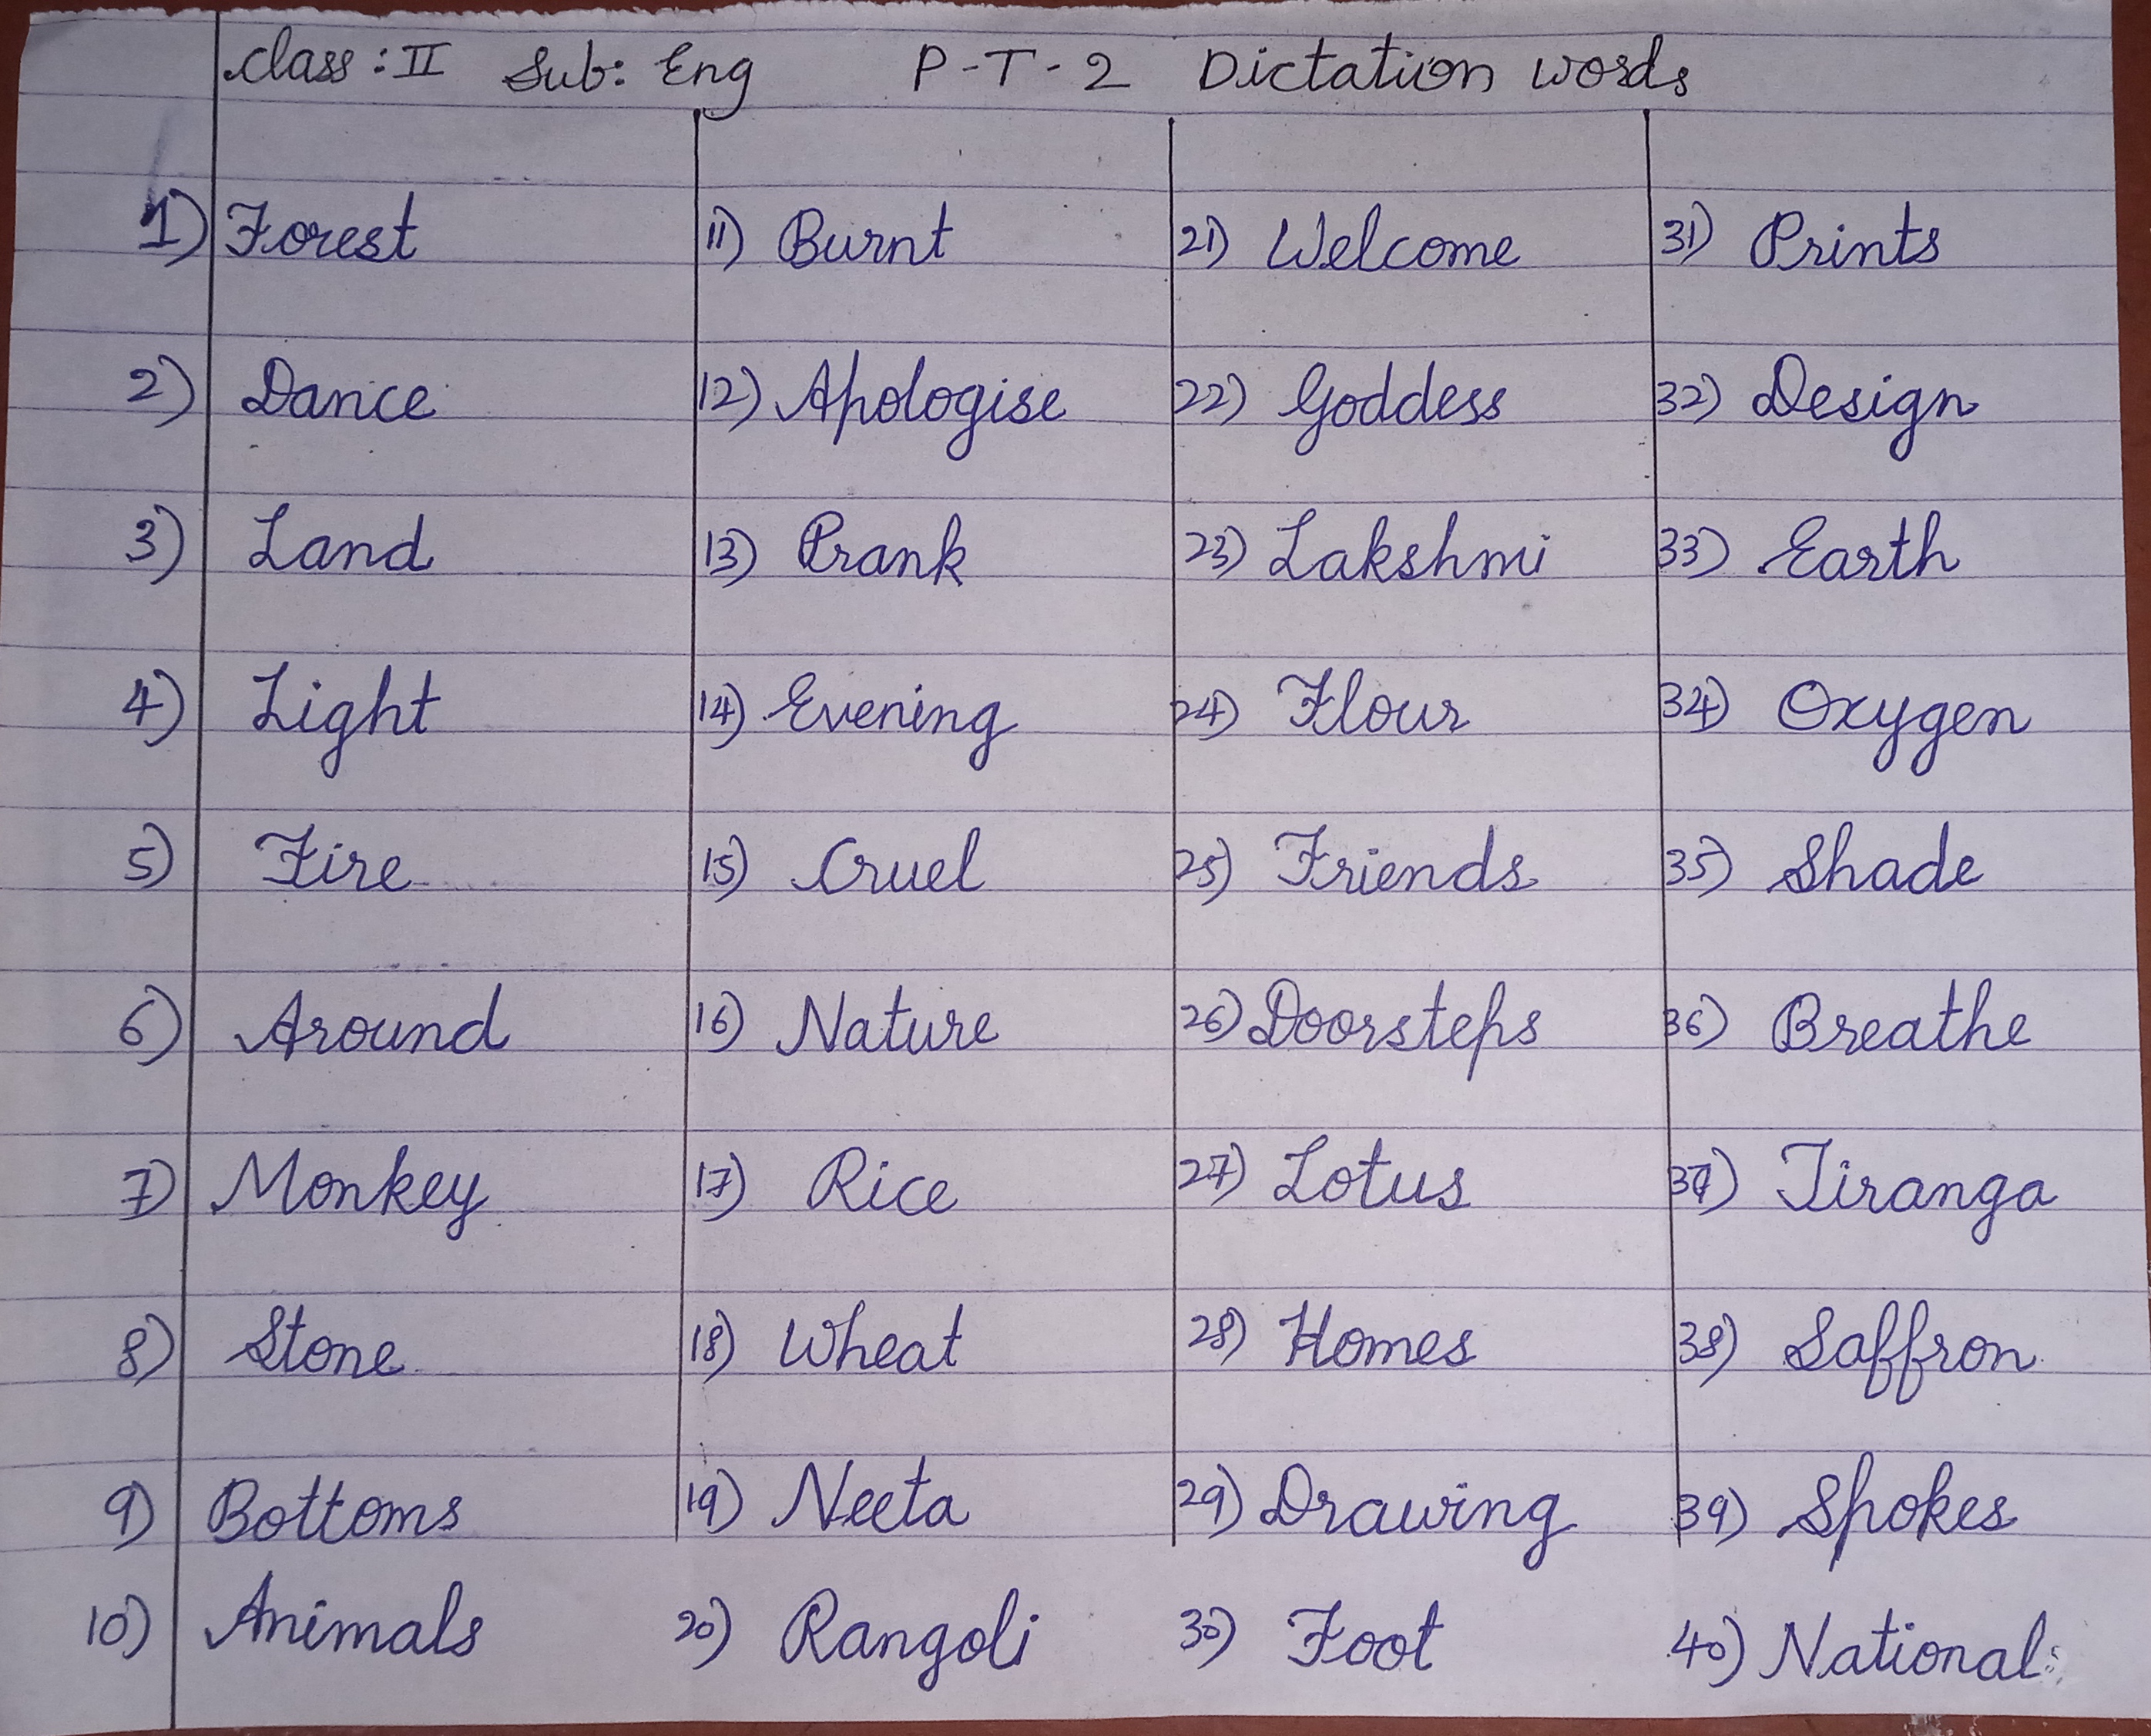 Class: II Sub: Eng P-T-2 Dictation words
1) Forest 11) Burnt 21) Welcome 31) Prints
2) Dance 12) Apologise 22) Goddess 32) Design
3) Land 13) Prank 23) Lakshmi 33) Earth
4) Light 14) Evening 24) Flour 34) Oxygen
5) Fire 15) Cruel 25) Friends 35) Shade
6) Around 16) Nature 26) Doorsteps 36) Breathe
7) Monkey 17) Rice 27) Lotus 37) Tiranga
8) Stone 18) Wheat 28) Homes 38) Saffron
9) Bottoms 19) Neeta 29) Drawing 39) Spokes
10) Animals 20) Rangoli 30) Foot 40) National